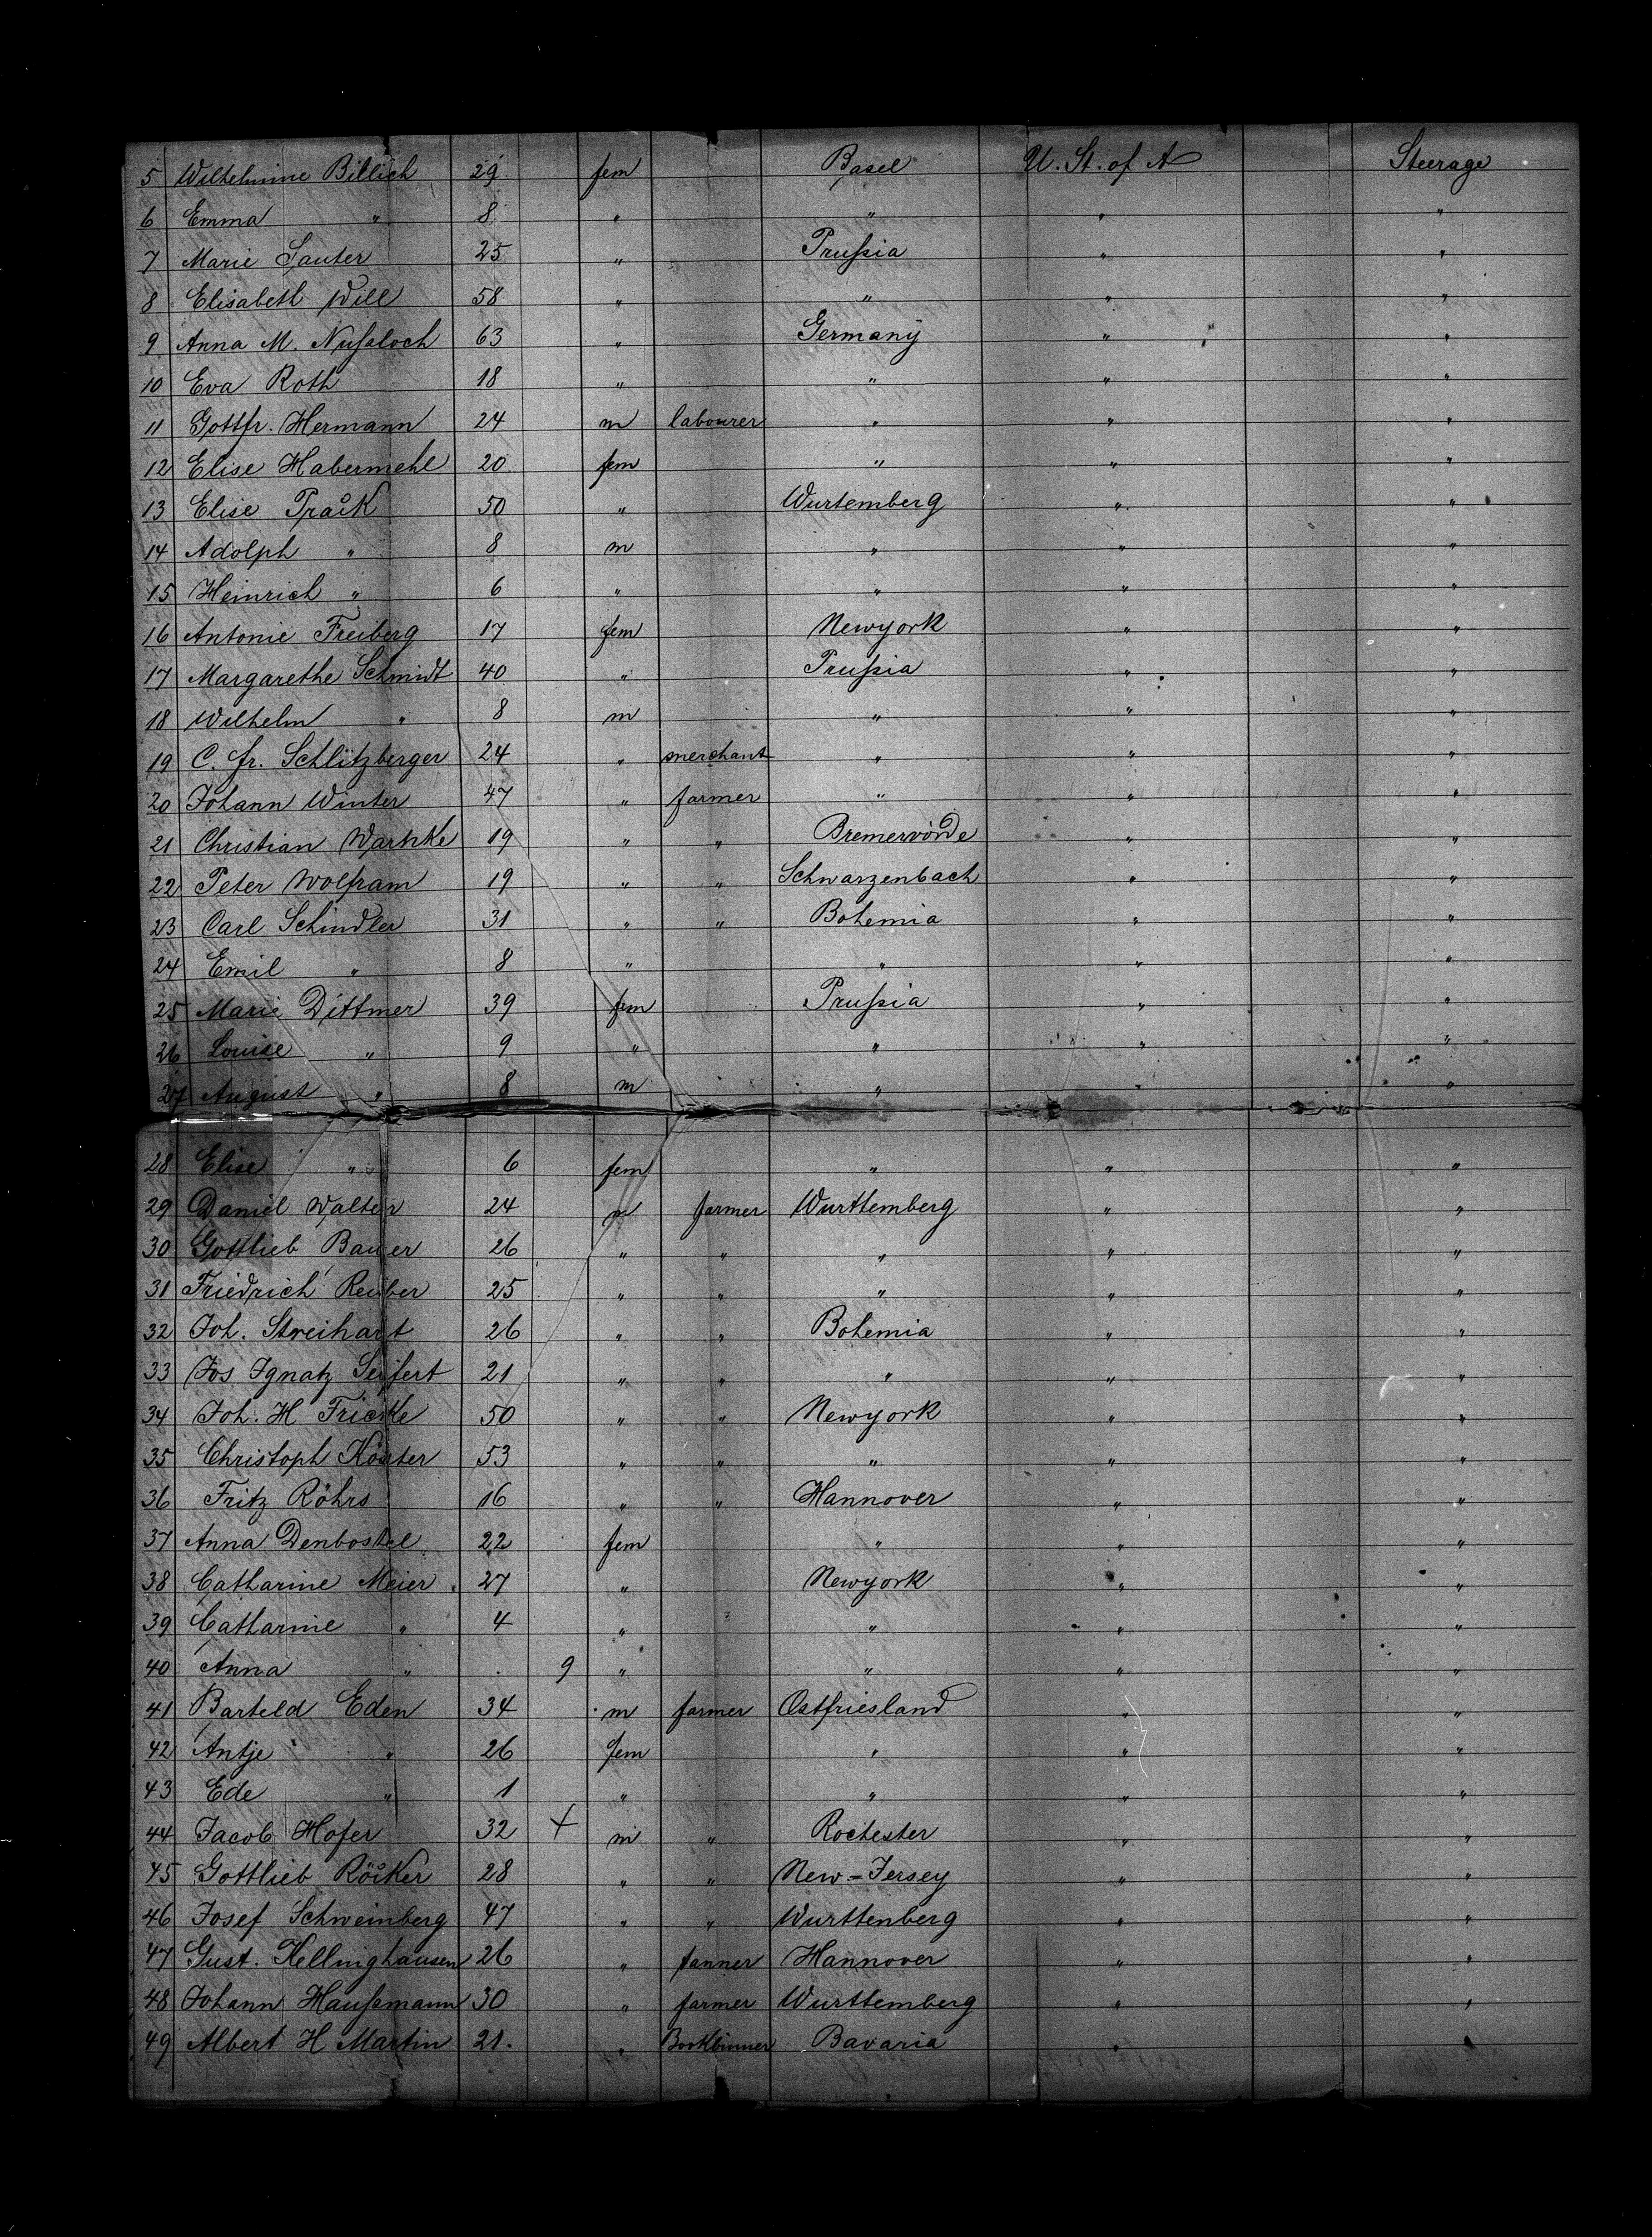 5 Wilhelmine Billich 29 fem Basel U. St. of A Steerage
6 Emma " 8 " " " "
7 Marie Sauter 25 " Prußia " "
8 Elisabeth Will 58 " " " "
9 Anna M. Nußloch 63 " Germany " "
10 Eva Roth 18 " " " "
11 Gottfr. Hermann 24 m labourer " " "
12 Elise Habermehl 20 fem " " "
13 Elise 50 " Wurtemberg " "
14 Adolph " 8 m " " "
15 Heinrich " 6 " " " "
16 Antonie Freiberg 17 fem Newyork " "
17 Margarethe Schmidt 40 " Prußia " "
18 Wilhelm " 8 m " " "
19 C. Fr. Schlitzberger 24 " merchant " " "
20 Johann Winter 47 " farmer " " "
21 Christian Warnke 19 " " Bremervörde " "
22 Peter Wolfram 19 " " Schwarzenbach " "
23 Carl Schindler 31 " " Bohemia " "
24 Emil " 8 " " " "
25 Marie Dittmer 39 fem Prußia " "
26 Louise " 9 " " " "
27 August " 8 m " " "
28 Elise " 6 fem " " "
29 Daniel Walter 24 m farmer Wurttemberg " "
30 Gottlieb Bauer 26 " " " " "
31 Friedrich Reuber 25 " " " " "
32 Joh. Streihart 26 " " Bohemia " "
33 Jos Ignatz Seifert 21 " " " " "
34 Joh. H Fricke 50 " " Newyork " "
35 Christoph Köster 53 " " " " "
36 Fritz Röhrs 16 " " Hannover " "
37 Anna Denbostel 22 fem " " "
38 Catharine Meier 27 " Newyork " "
39 Catharine " 4 " " " "
40 Anna " 9 " " " "
41 Barteld Eden 34 m farmer Ostfriesland " "
42 Antje " 26 fem " " "
43 Ede " 1 " " " "
44 Jacob Hofer 32 + m " Rochester " "
45 Gottlieb 28 " " New=Jersey " "
46 Josef Schweinberg 47 " " Wurttenberg " "
47 Gust. Kellinghausen 26 " tanner Hannover " "
48 Johann Haußmann 30 " farmer Wurttemberg " "
49 Albert H Martin 21. " Bookbinner Bavaria " "